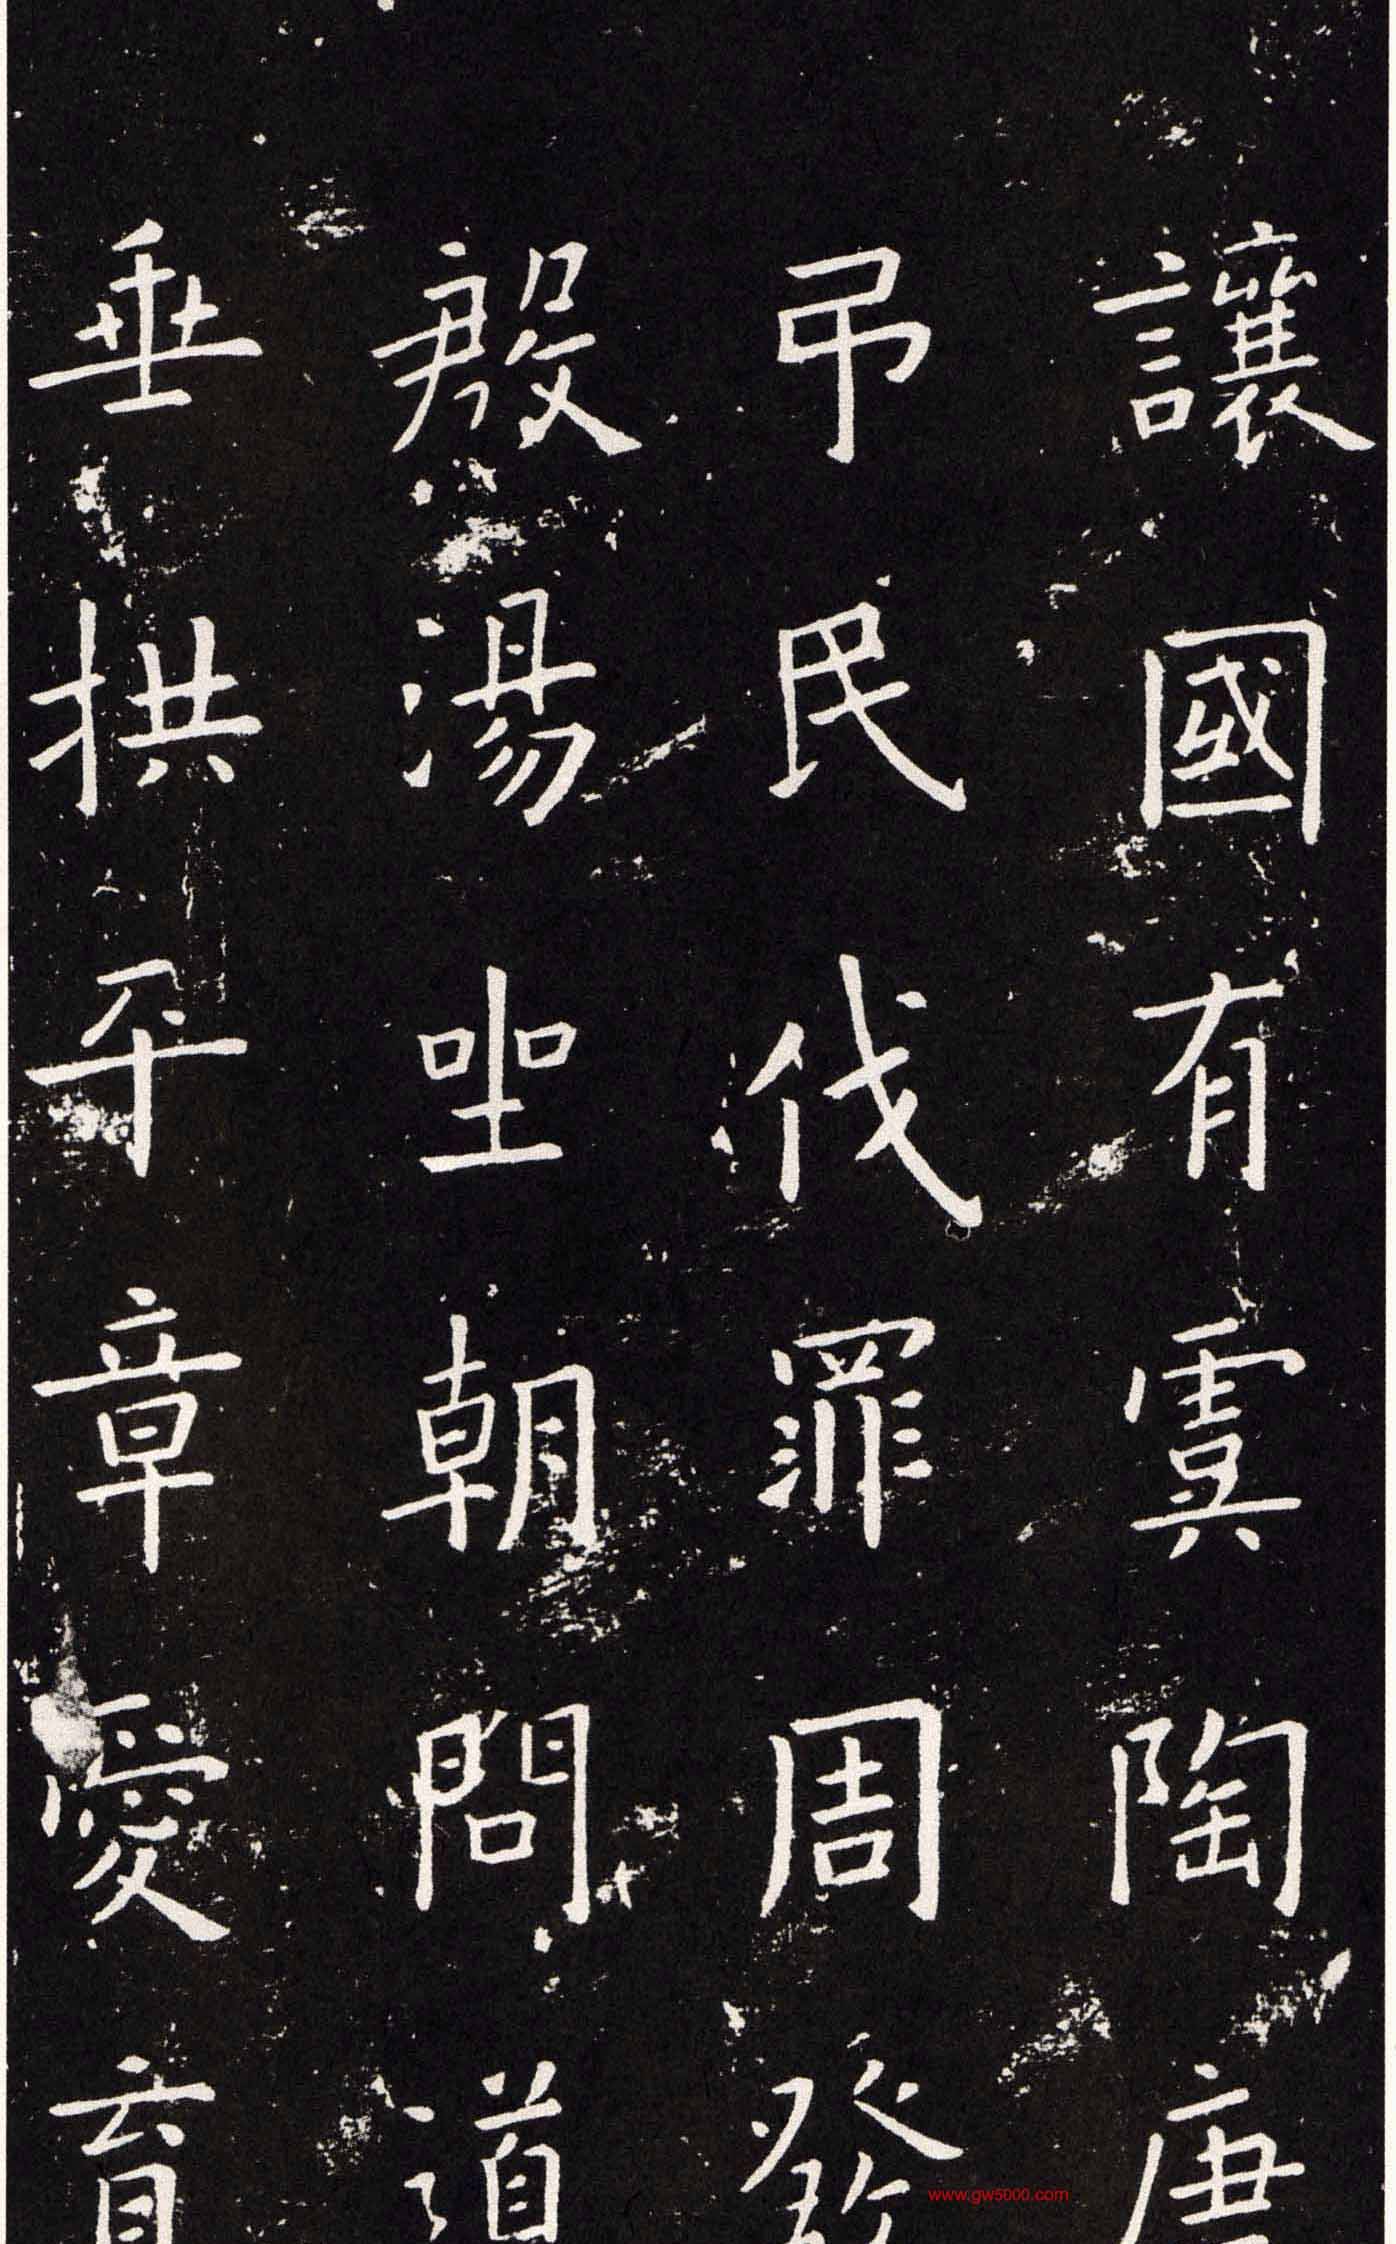 讓國有虞陶唐
弔民伐罪周發
殷湯坐朝問道
垂拱平章愛育
www.gw5000.com